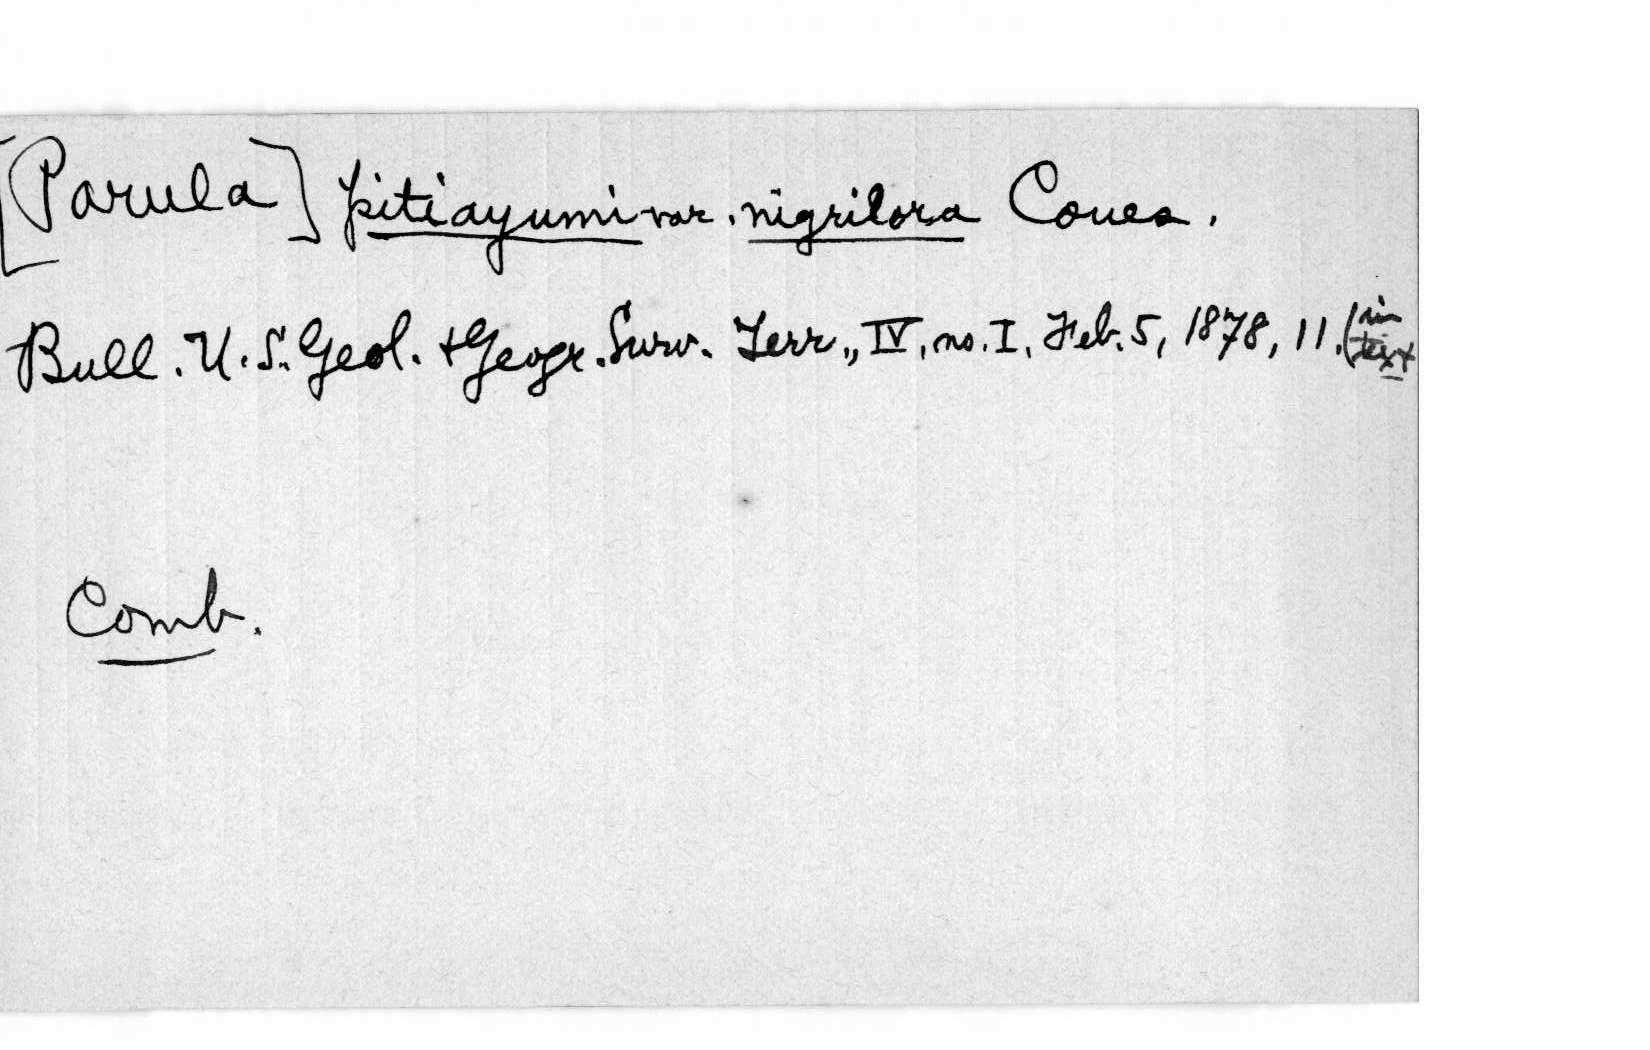 [Parula] pitiayumi var. nigrilora Coues.
Bull. U.S. Geol. + Geogr. Surv. Terr., IV, no. I, Feb. 5, 1878, 11. (in
text
Comb.